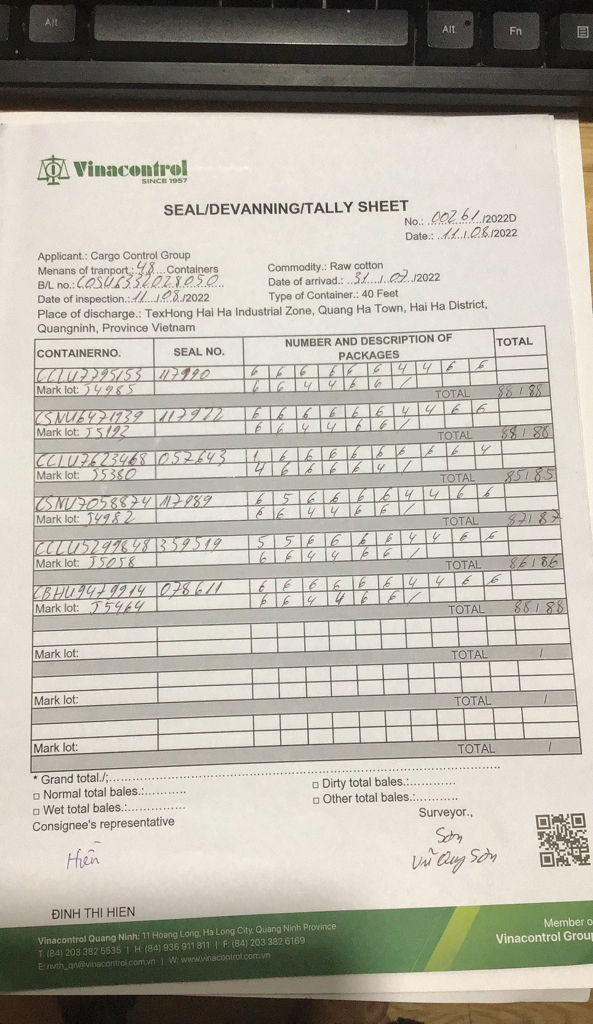 Alt
Alt
Fn
Vinacontrol
SINCE 1957
SEAL/DEVANNING/TALLY SHEET
No.: 00261/2022D
Date.: 11/08/2022
Applicant.: Cargo Control Group
Menans of tranport.: 48 Containers
Commodity.: Raw cotton
B/L no.: COSU6332028050
Date of arrival.: 31/07/2022
Date of inspection.: 11/08/2022
Type of Container.: 40 Feet
Place of discharge.: TexHong Hai Ha Industrial Zone, Quang Ha Town, Hai Ha District,
Quangninh, Province Vietnam
CONTAINERNO. SEAL NO. NUMBER AND DESCRIPTION OF PACKAGES TOTAL
CCLU7795153 117990 6 6 6 6 6 6 4 4 6 6
Mark lot: J4985 6 6 4 4 6 6 /
TOTAL 88/88
CSNU6471939 117922 6 6 6 6 6 6 4 4 6 6
Mark lot: J5193 6 6 4 4 6 6 /
TOTAL 88/88
CCLU7623468 057643 1 6 6 6 6 6 6 6 6 4
Mark lot: J5380 4 6 6 6 6 4 /
TOTAL 85/85
CSNU7058874 117989 6 5 6 6 6 6 4 4 6 6
Mark lot: J4982 6 6 4 4 6 6 /
TOTAL 87/87
CCLU5299848 359519 5 5 6 6 6 6 4 4 6 6
Mark lot: J5058 6 6 4 4 6 6 /
TOTAL 86/86
CBHU9479914 078611 6 6 6 6 6 6 4 4 6 6
Mark lot: J5464 6 6 4 4 6 6 /
TOTAL 88/88
Mark lot: TOTAL /
Mark lot: TOTAL /
Mark lot: TOTAL /
* Grand total./:
Normal total bales.:
Dirty total bales.:
Wet total bales.:
Other total bales.:
Consignee's representative
Surveyor.,
Hiền
Sơn
Vũ Quy Sơn
ĐINH THI HIEN
Vinacontrol Quang Ninh: 11 Hoang Long, Ha Long City, Quang Ninh Province
T: (84) 203 382 5535 | H: (84) 936 911 811 | F: (84) 203 382 6169
E:nvth_qn@vinacontrol.com.vn | W: www.vinacontrol.com.vn
Member o
Vinacontrol Group